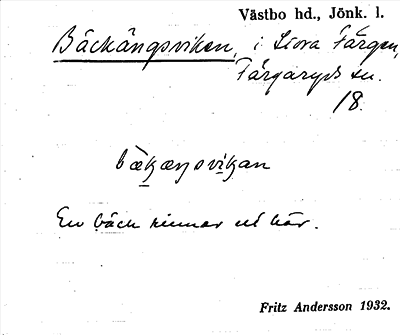 Västbo hd., Jönk. l.
Bäckängsviken, i Stora Färgen,
Färgaryds sn.
18.
bækæŋsvikan
En bäck rinner ut här.
Fritz Andersson 1932.